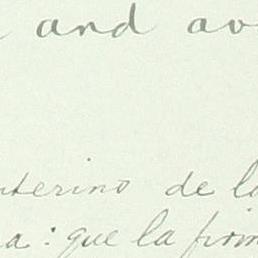 and av
nterino de la
a: que la prim